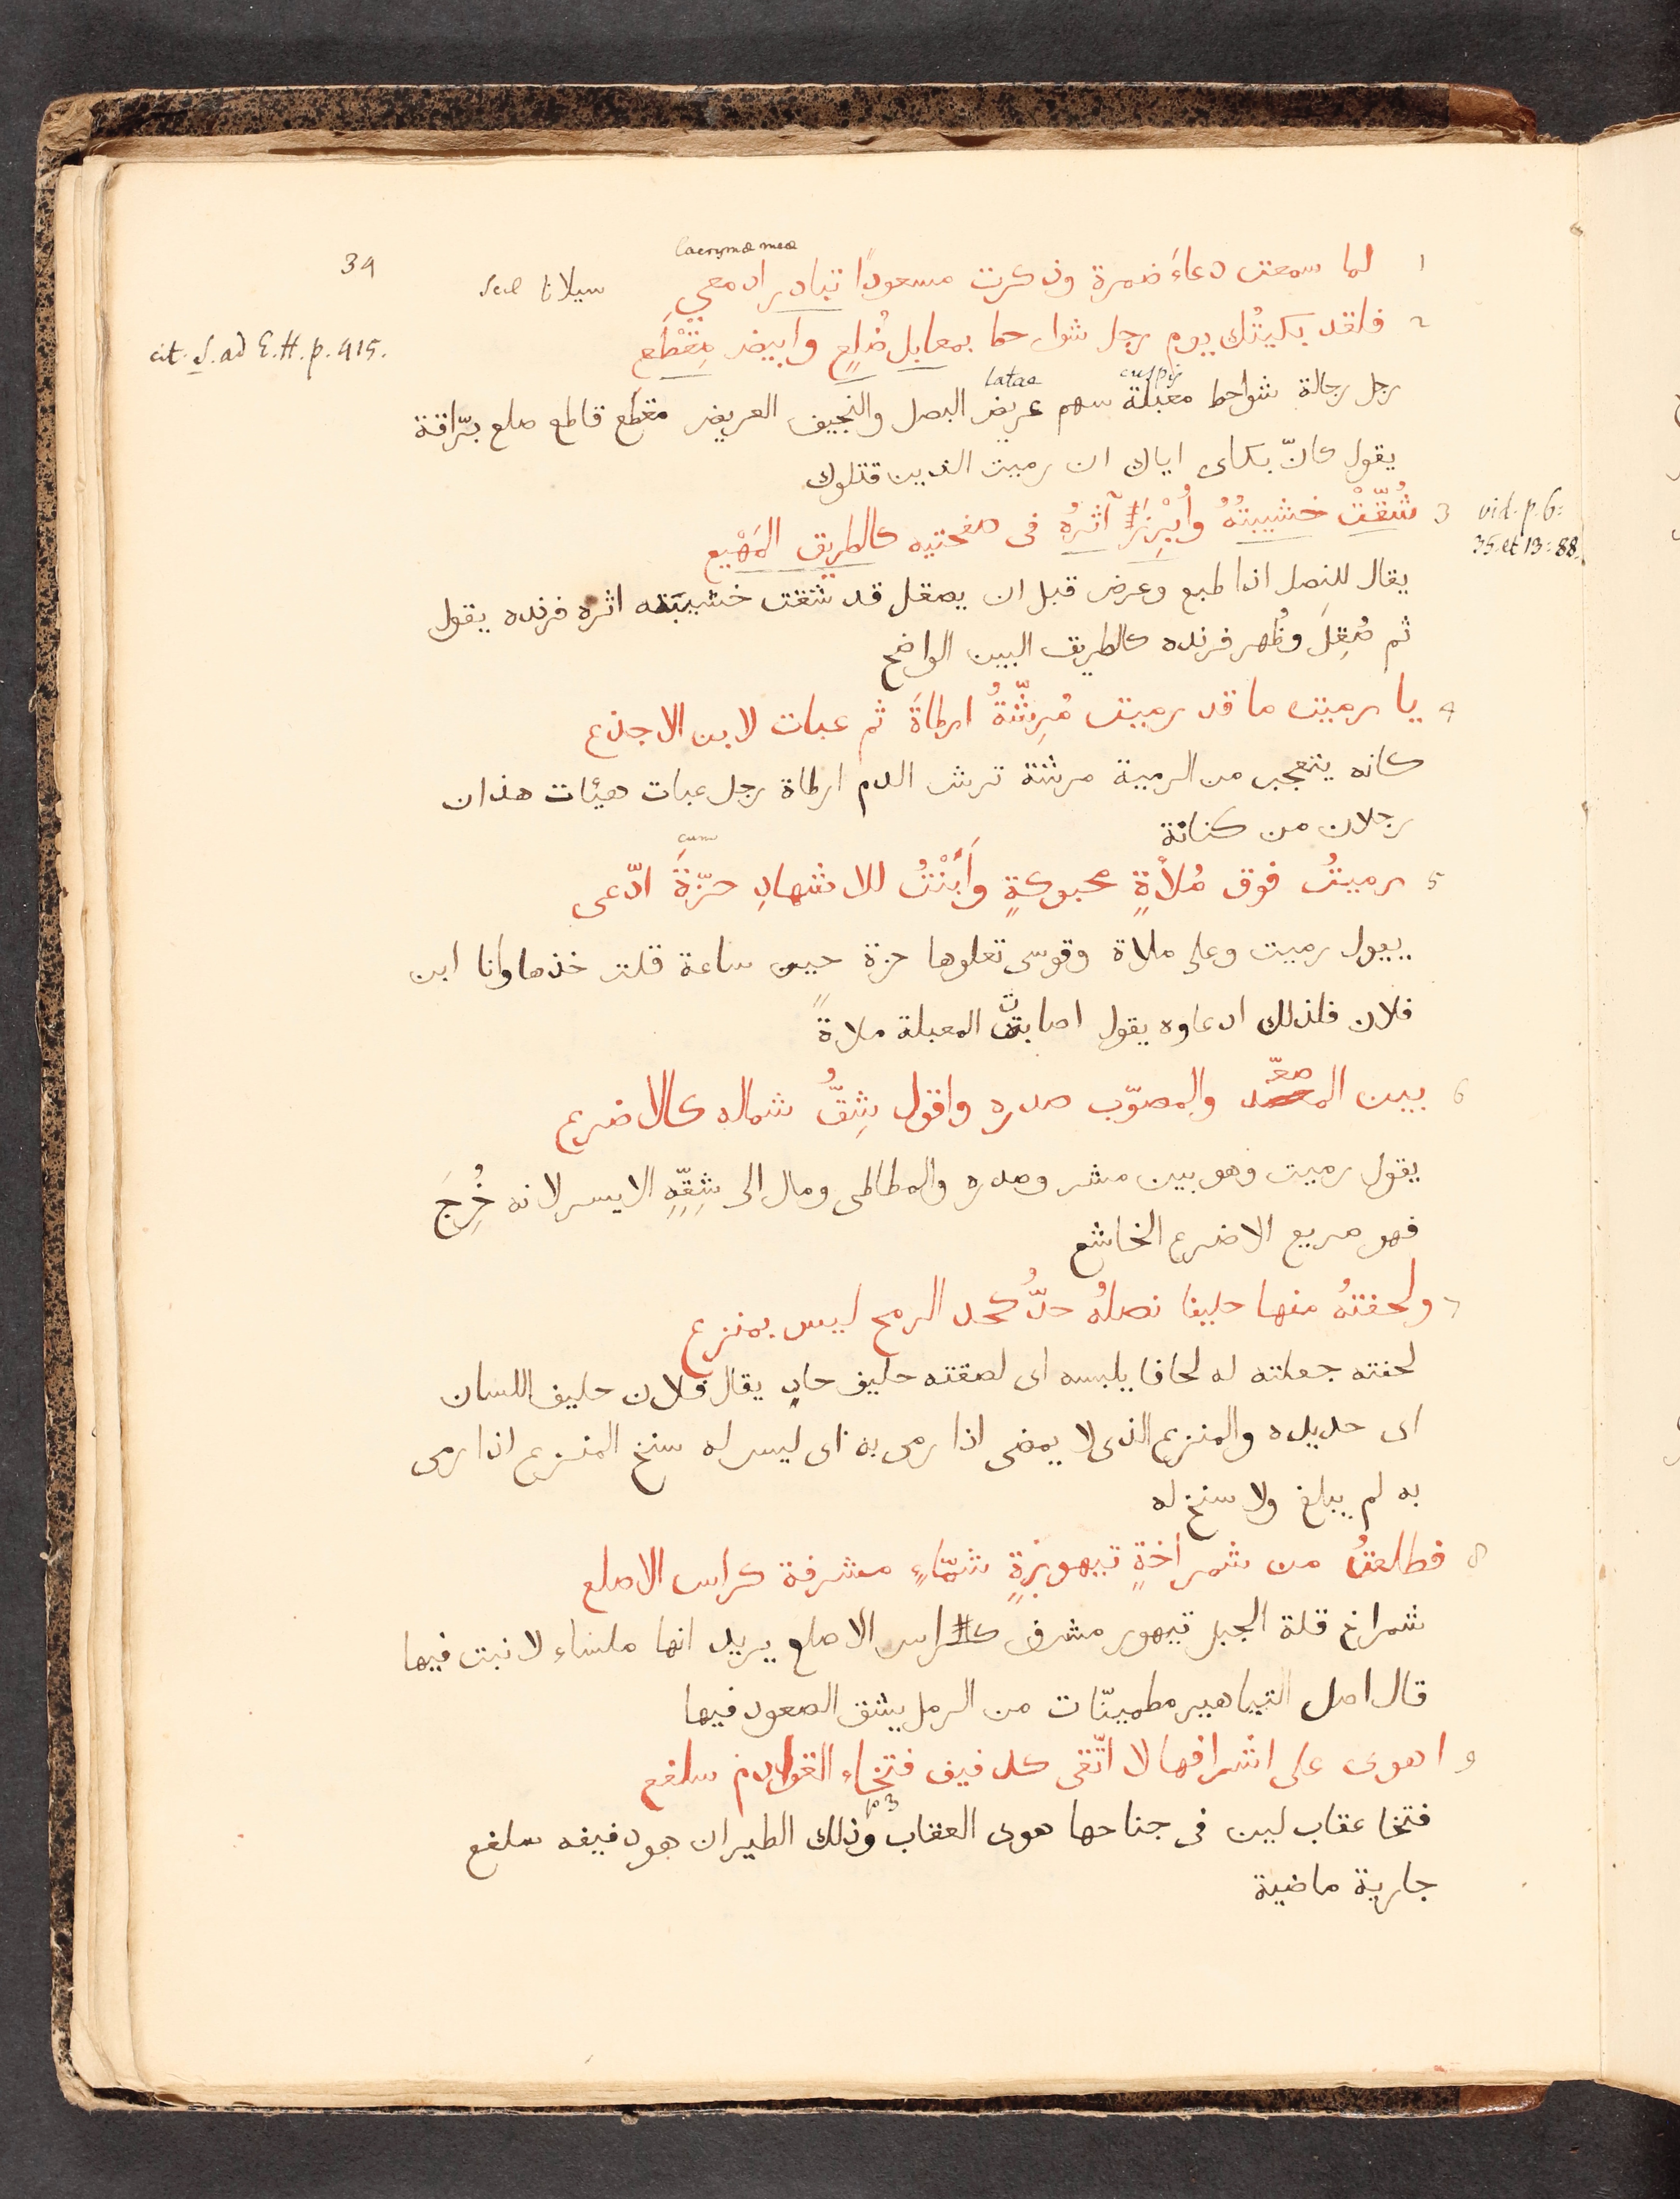 34
lacrymæ meæ
1 لما سمعت دعاءَ ضمرة وذكرت مسعودًا تبادر ادمعي سيلانا scil
2 فلقد بكيتُك يوم رجل شواحط بمعابل صُلعٍ وابيض مِقْطَع
cit. S. ad E.H. p. 415.
latae cuspis
رجل رجالة شواحط معبلة سهم عريض النصل والنجيف العريض مقطع قاطع صلع برّاقة
يقول كانّ بكاى اياك ان رميت الذين قتلوك
3 شُقّتْ خشيبتُهُ وأُبْرِزَ آثرُهُ فى صفحتيه كالطريق المَهْيع
vid. p. 6:
35. et 13: 88.
يقال للنصل اذا طبع وعرض قبل ان يصقل قد شقت خشيبته اثره فرنده يقول
ثم صُقِلَ وظُهر فرنده كالطريق البين الواضح
4 يا رميت ما قد رميت مُرِشّةُ ارطاةَ ثم عبات لابن الاجذع
كانه يتعجب من الرمية مرشة ترش الدم ارطاة رجل عبات هيّات هذان
رجلان من كنانة
cum
5 رميتُ فوق مُلأةٍ محبوكةٍ وأَبَنْتُ للاشهادِ حزّةَ ادّعى
يقول رميت وعلى ملاة وقوسى تعلوها حزة حين ساعة قلت خذها وانا ابن
فلان فلذلك ادعاوه يقول اصابت المعبلة ملاةً
6 بين المصعّد والمصوّب صدره واقول شِقُّ شماله كالاضرع
يقول رميت وهو بين مشر وصدره والمطاطى ومال الى شِقِّهِ الايسر لانه خُرِجَ
فهو صريع الاضرع الخاشع
7 ولحفتهُ منها حليفا نصلهُ حدُّ كحد الرمح ليس بمنزع
لحفته جعلته له لحافا يلبسه اى لصقته حليف حاد يقال فلان حليف اللسان
اى حديده والمنزع الذى لا يمضى اذا رمى به اى ليس له سنخ المنزع اذا رمى
به لم يبلغ ولا سنخ له
8 فطلعتُ من شمراخةٍ تيهورةٍ شمّاءِ مشرفة كراس الاصلع
شمراخ قلة الجبل تيهور مشرف كراس الاصلع يريد انها ملساء لا نبت فيها
قال اصل التياهير مطمينّات من الرمل يشق الصعود فيها
9 اهوى على اشرافها لا اتّقى كدفيف فتخاء القوادم سلفع
فتخا عقاب لين فى جناحها هوى العقاب وذلك الطيران هو دفيفه سلفع
جارية ماضية